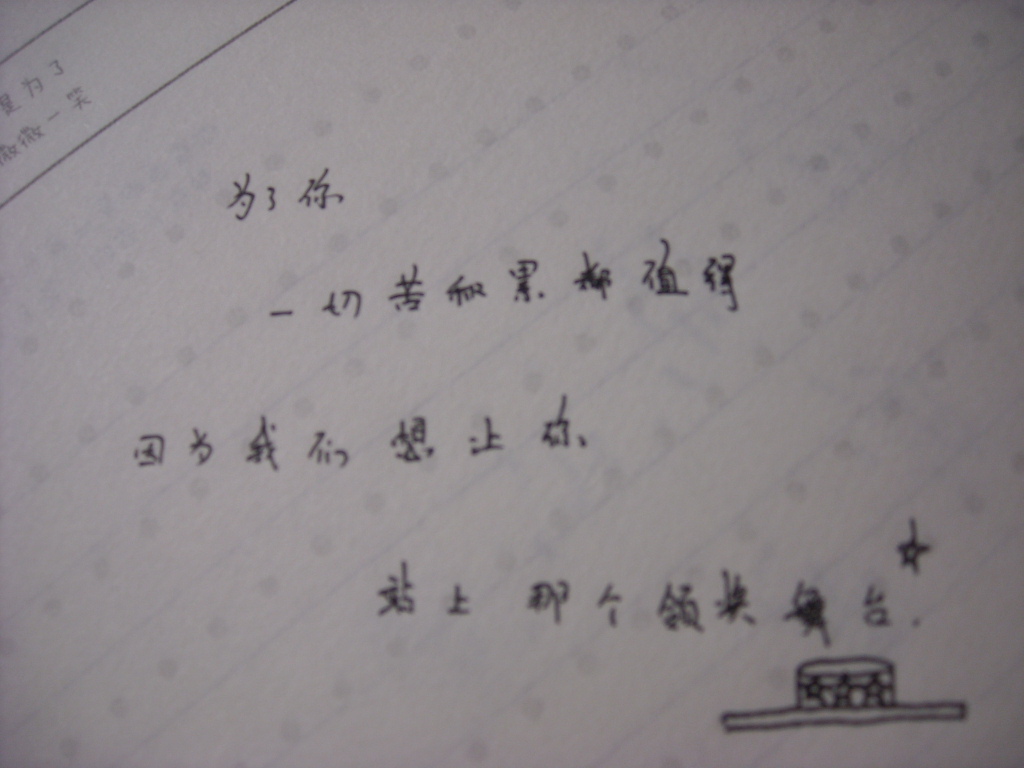 为了
微微一笑
为了你
一切苦和累都值得
因为我们想让你
站上那个领奖舞台.